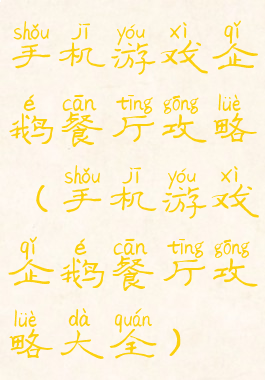 shǒu jī yóu xì qǐ
手机游戏企
é cān tīng gōng lüè
鹅餐厅攻略
shǒu jī yóu xì
(手机游戏
qǐ é cān tīng gōng
企鹅餐厅攻
lüè dà quán
略大全)